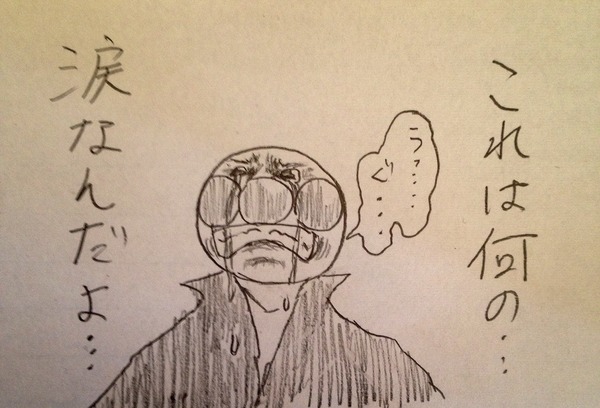 これは何の…
うっ……
ぐ…
涙なんだよ…